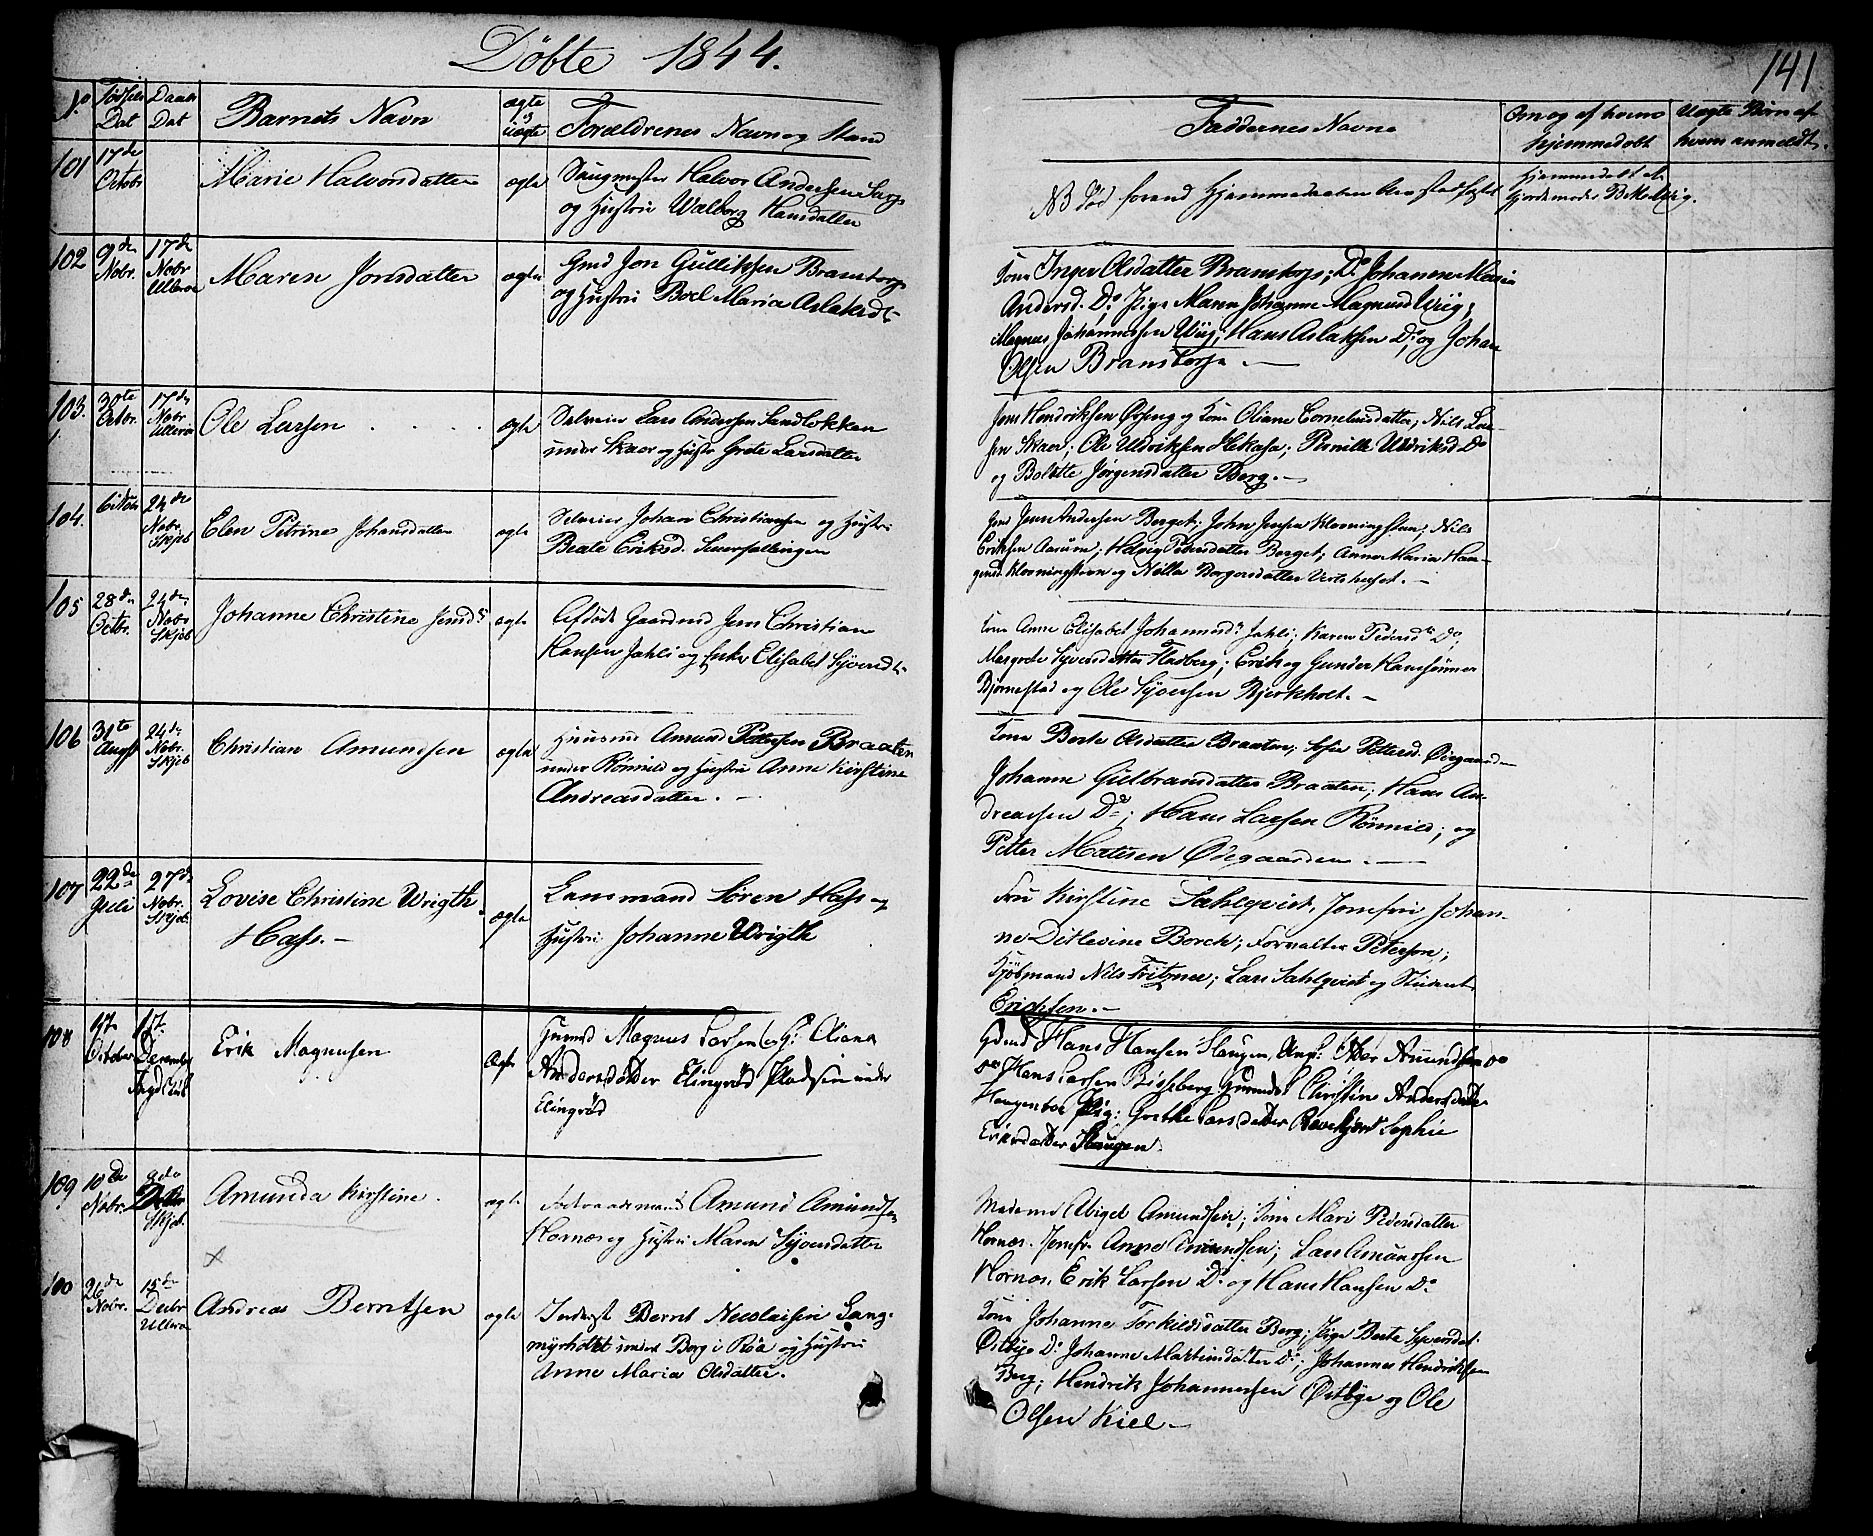 Döbte 1844.
141
No Födsels Dat Daabs Dat Barnets Navn ægte og uægte Forældrenes Navn og Stand
Faddernes Navne
Om og af hvem hjemmedøbt
Uægte Börn af hvem anmeldt.
101 17de Octobr Marie Halvorsdatter ægte Saugmester Halvor Andersen
og Hustru Walborg Hansdatter
NB Død forend Hjemmedaaben
Hjemmedøbt af
Gjordemoder
102 9de Nobr. 17de Nobr Ullerø Maren Jonsdatter ægte Gmd Jon Gulliksen Brænstorp
og Hustru Boel Maria Aslaksdt
Kone Inger Olsdatter Branstorp; Do Johanne Maria
Andersd. Do; Pige Maren Johanne Magnusd Wiig;
Magnus Johannessen Wiig; Hans Aslaksen Do og Johan
Olsen Branstorp. —
103. 30te Octbr. 17de Nobr Ullerø Ole Larsen . . . . ægte Selveier Lars Andersen Sandløkken
under Skaor og Hustr Grete Larsdatter
Jens Hendriksen Ørseng og Kone Oliane Corneliusdatter; Nils Lar-
sen Skaor; Ole Uldriksen Hekasa; Pernille Uldriksd. Do
og Bolette Jørgensdatter Berg. —
104. 6te Nobr 24de Nobr. Skjeb Elen Petrine Johansdatter ægte Selveier Johan Christiansen og Hustru
Beate Eriksd.
Jens Andersen Berget; John Jensen Kloeningsteen; Nils
Eriksen Aarum; Helvig Petersdatter Berget; Anne Maria Haa-
gensd. Kloeningsteen og Nilla Borgersdatter Vertshuset. —
105 28de Octbr. 24de Nobr Skjeb Johanne Christine Jensdt ægte Afdøde Gaardmd Jens Christian
Hansen Jahli og Enke Elisabet Syversdt
Kone Anne Elisabet Johannesdt Jahli; Karen Pedersdt Do;
Margrete Syversdatter Fladberg; Erik og Gunder Hanssønner
Björnestad og Ole Syversen Bjerkholt. —
106 31te Augst 24de Nobr. Skjeb Christian Amundsen ægte Huusmd Amund Petersen Braaten
under Rönnild og Hustru Anne Kirstine
Andreasdatter. —
Kone Berte Olsdatter Braaten; Sofie Pettersd. Ödegaarden
Johanne Gulbransdatter Braaten; Hans An-
dreassen Do; Hans Larsen Rönnild; og
Petter Matesen Ödegaarden. —
107 22de Juli 27de Nobr. Skjeb. Lovise Christine Wrigth
Hass. —
ægte Lensmand Sören Hass og
Hustru Johanne Wrigth
Fru Kirstine Sahlqvist, Jomfru Johan-
ne Ditlevine Borch; Forvalter Peterson;
Kjøbmand Nils Fritzner; Lars Sahlqvist og Student
Erichsen. —
108 17 October 1te December Ingdl Kirk Erik Magnusen ægte Huusmd Magnus Larsen og H: Oliana
Andersdatter Elingrød Pladsen under
Elingrød
Gdmd Hans Hansen Haugen, Ungk: Peder Amundsen do
do Hans Larsen Bisseberg Huusmds K Christine Andersdatter
Haugenbor Pig: Grethe Larsdatter Ravekjær Sophie
Eriksdatter Haugen.
109 10de Nobr. 8de Decbr Skjeb. Amunda Kirstine. ægte Amund Amundsen
Hornæs og Hustru Maren Syversdatter
Madame Abigel Amundsen; Kone Mari Pedersdatter
Hornæs. Jomfr. Anne Amundsen; Lars Amundsen
Hornæs, Erik Larsen Do og Hans Hansen Do
100 26de Nobr. 15de Decbr Ullerø Andreas Berntsen ægte Inderst Bernt Nicolaisen Lang-
myrholtet under Berg i Raa og Hustru
Anne Maria Olsdatter.
Kone Johanne Torkildsdatter Berg; Pige Berte Syversdat.
Östbye Do Johanne Martinsdatter Do; Johannes Hendriksen
Berg; Hendrik Johannessen Östbye og Ole
Olsen Kiel —